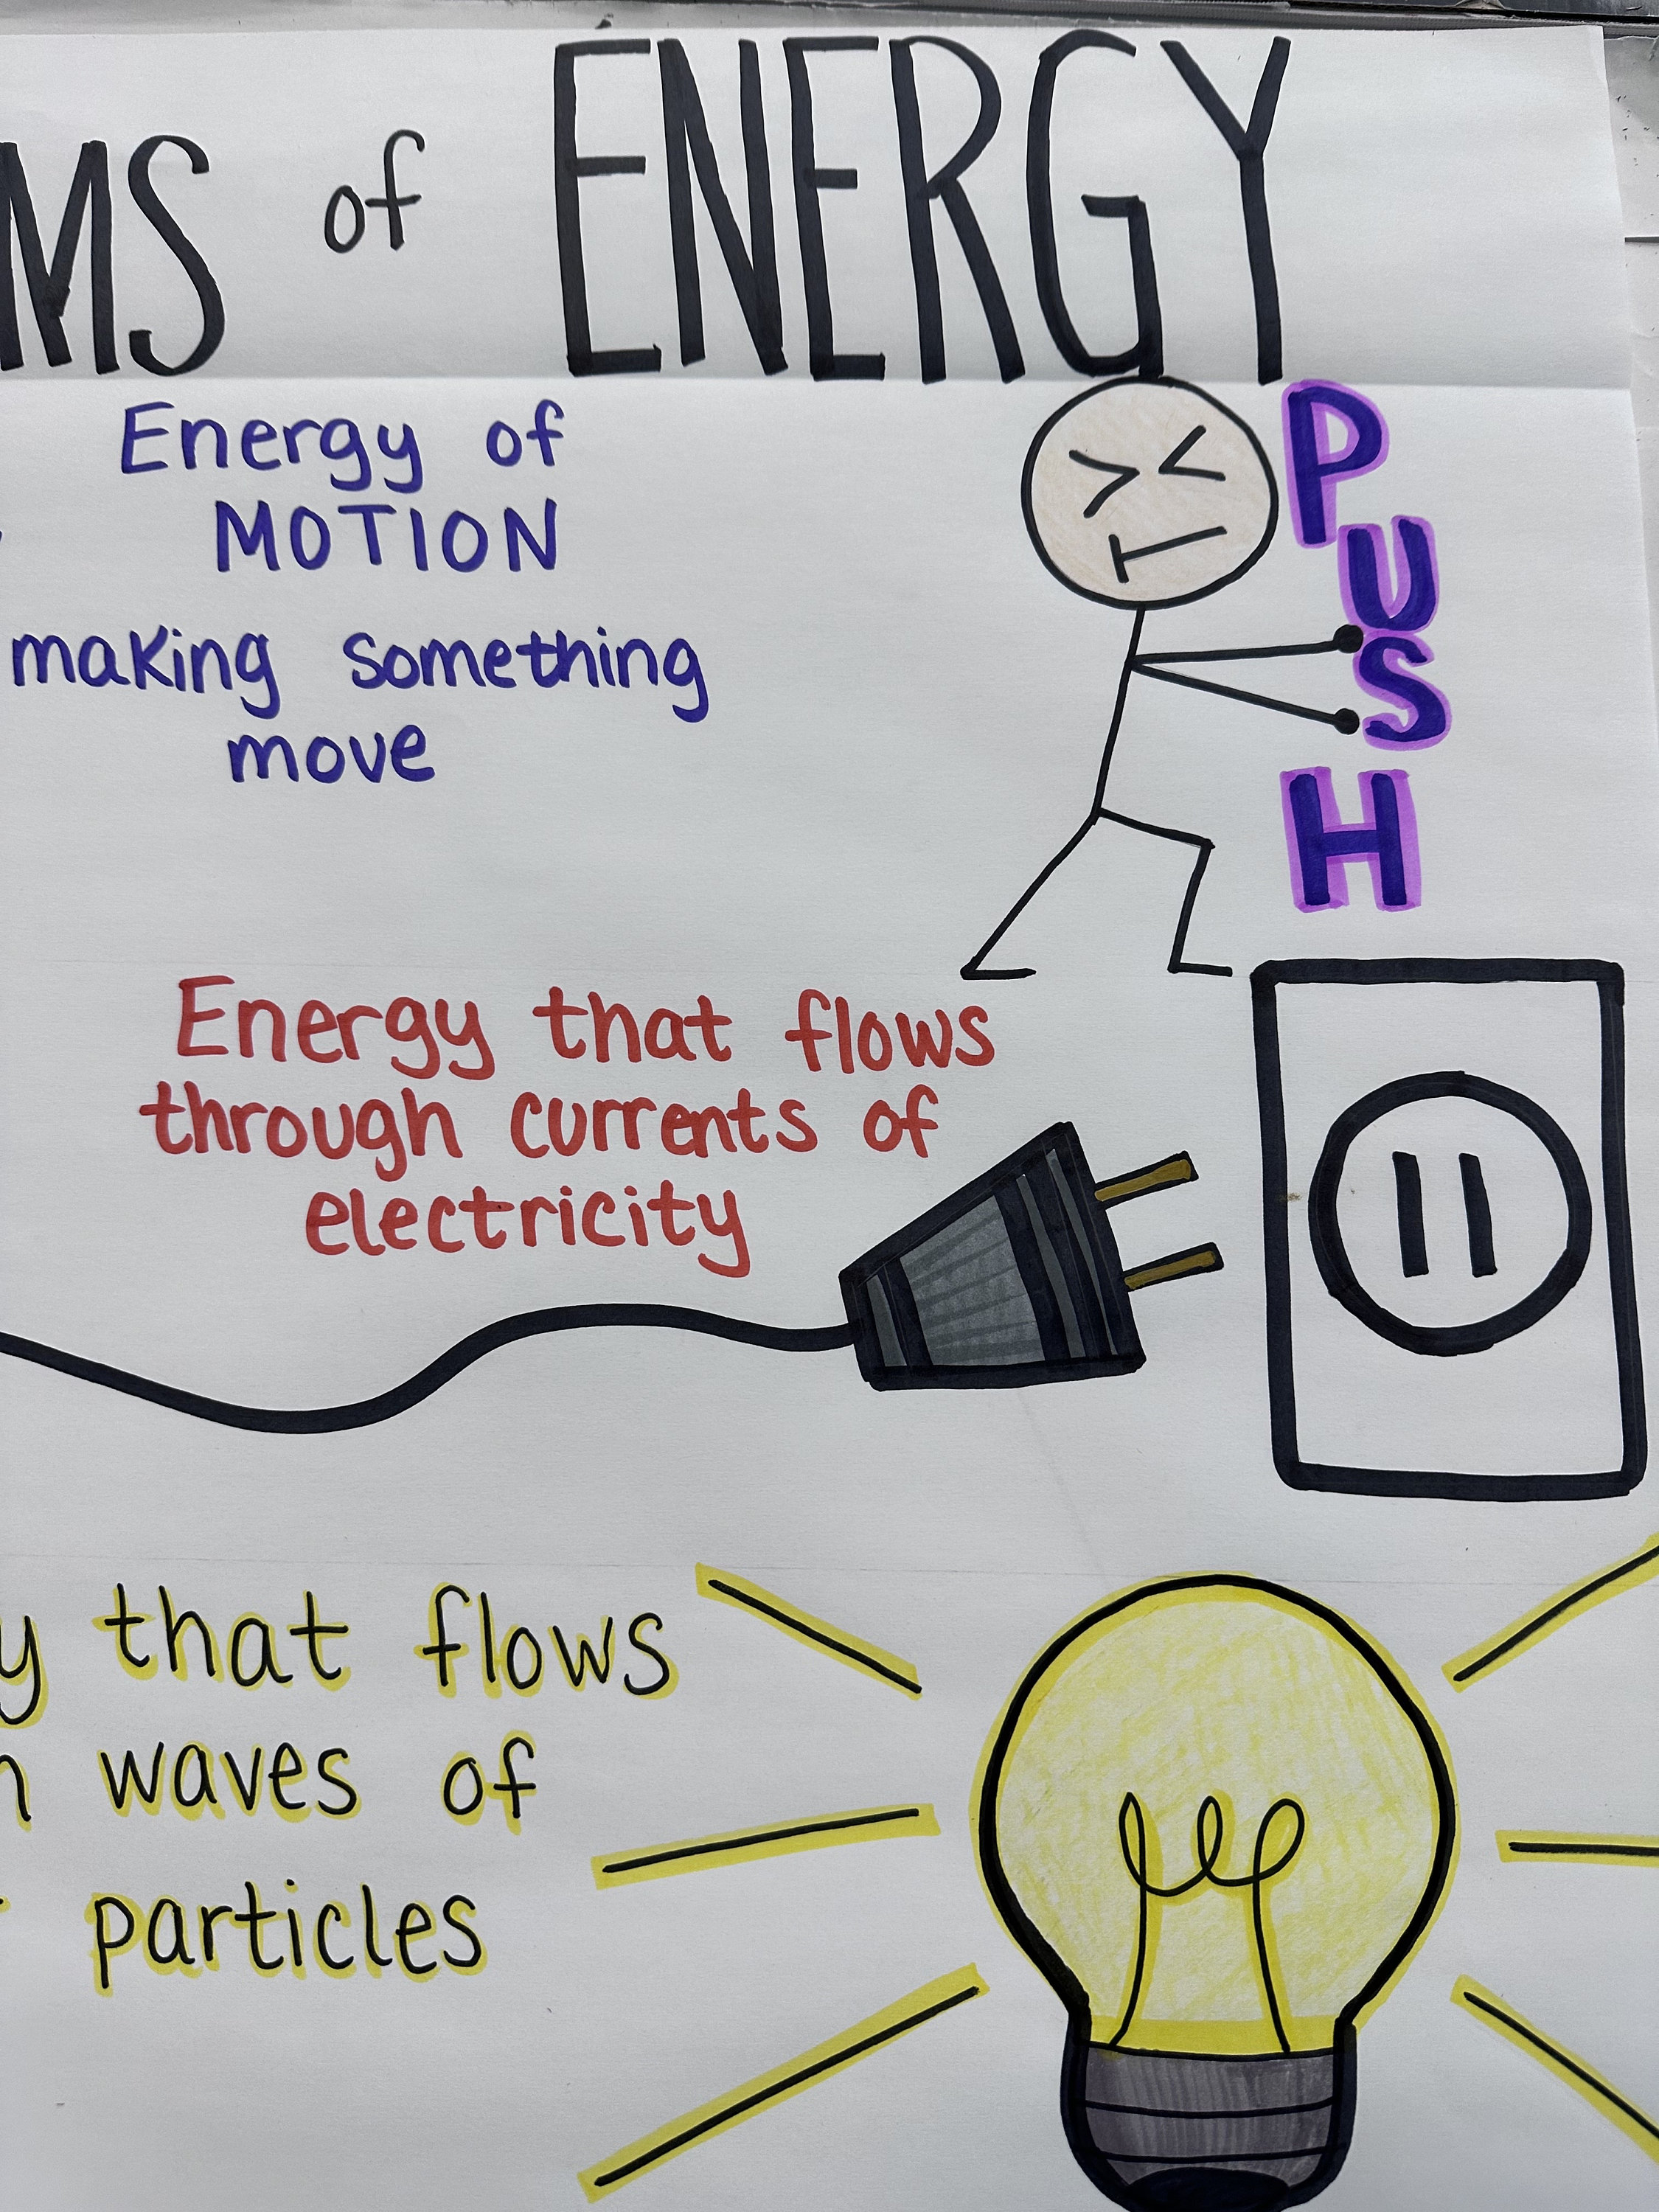 MS of ENERGY
Energy of
MOTION
making something
move
PUSH
Energy that flows
through currents of
electricity
y that flows
n waves of
particles